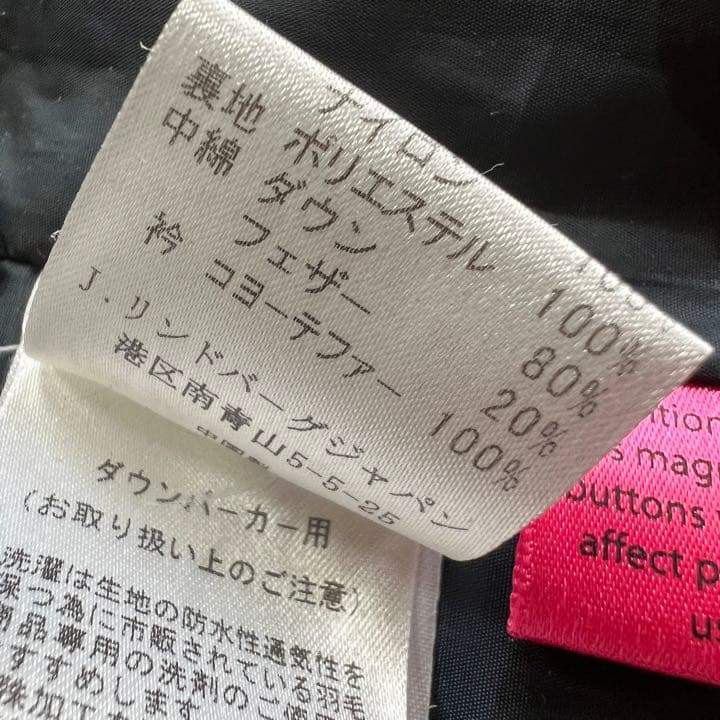 ナイロン 100%
裏地 ポリエステル 100%
中綿 ダウン 80%
フェザー 20%
衿 コヨーテファー 100%
J.リンドバーグジャパン
港区南青山5-5-25
ダウンパーカー用
(お取り扱い上のご注意)
洗濯は生地の防水性通気性を
保つ為に市販されている羽毛
製品専用の洗剤のご使
すすめします
mag
buttons
affect p